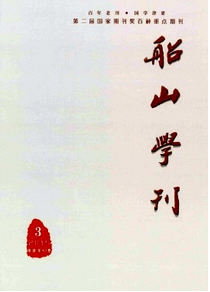 百年老刊 • 国学津梁
第二届国家期刊奖百种重点期刊
船山學刊
3